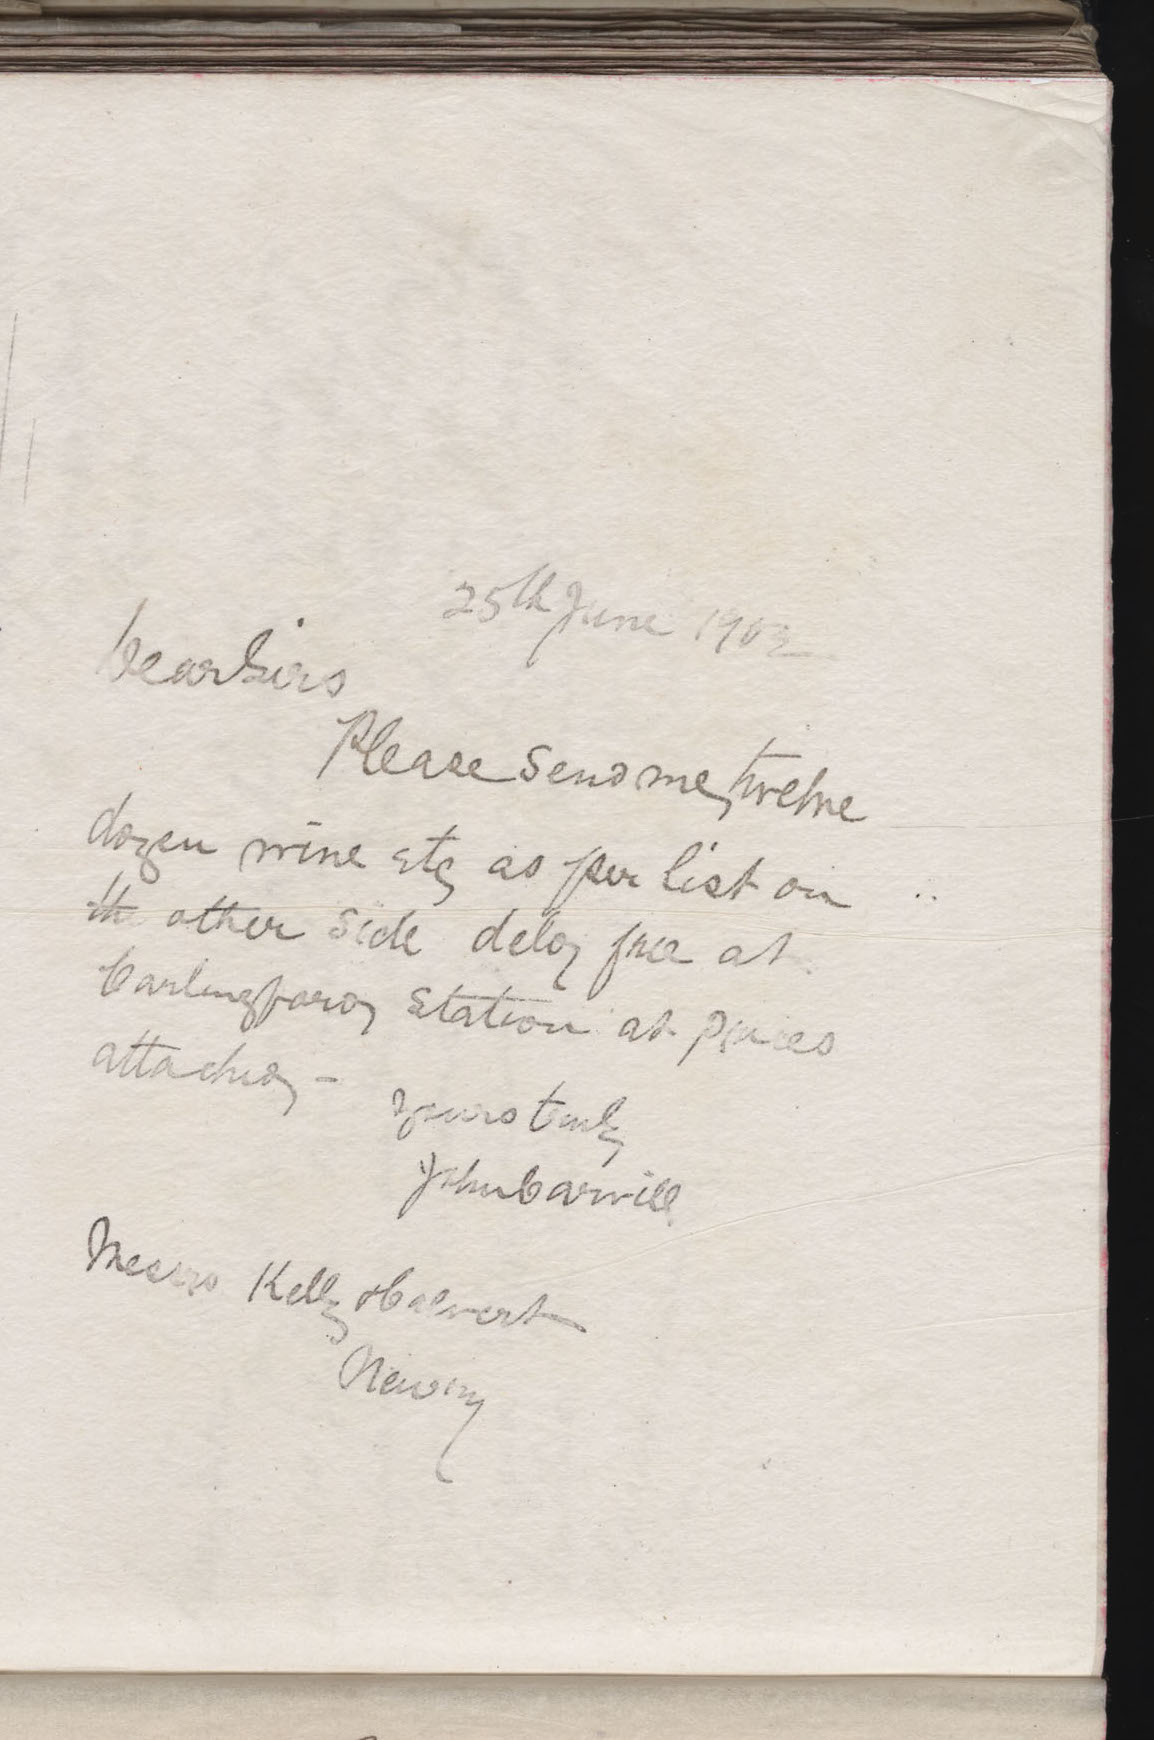 25th June 1902
Dear Sirs
Please send me twelve
dozen wine etc as per list on
the other side deld free at
Carlingford Station at prices
attached -
Yours truly
John Carvill
Messrs Kelly & Calvert
Newry